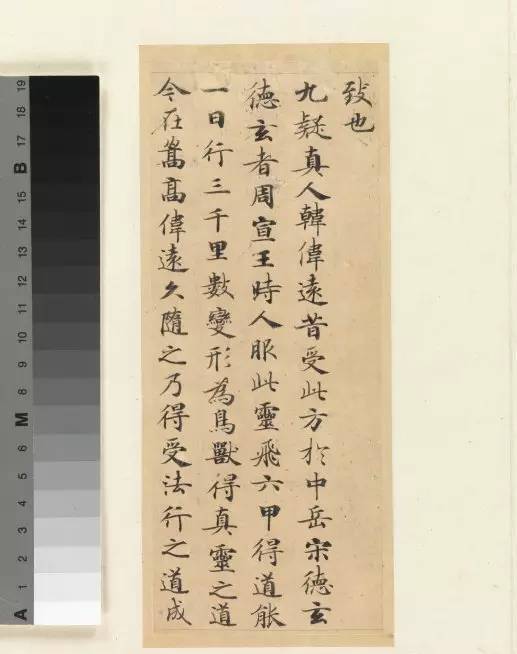 致也
九疑真人韓偉遠昔受此方於中岳宋德玄
德玄者周宣王時人服此靈飛六甲得道能
一日行三千里數變形為鳥獸得真靈之道
今在嵩高偉遠久隨之乃得受法行之道成
19
18
17
B
16
15
14
13
12
11
10
9
M
8
7
6
5
4
3
2
1
A